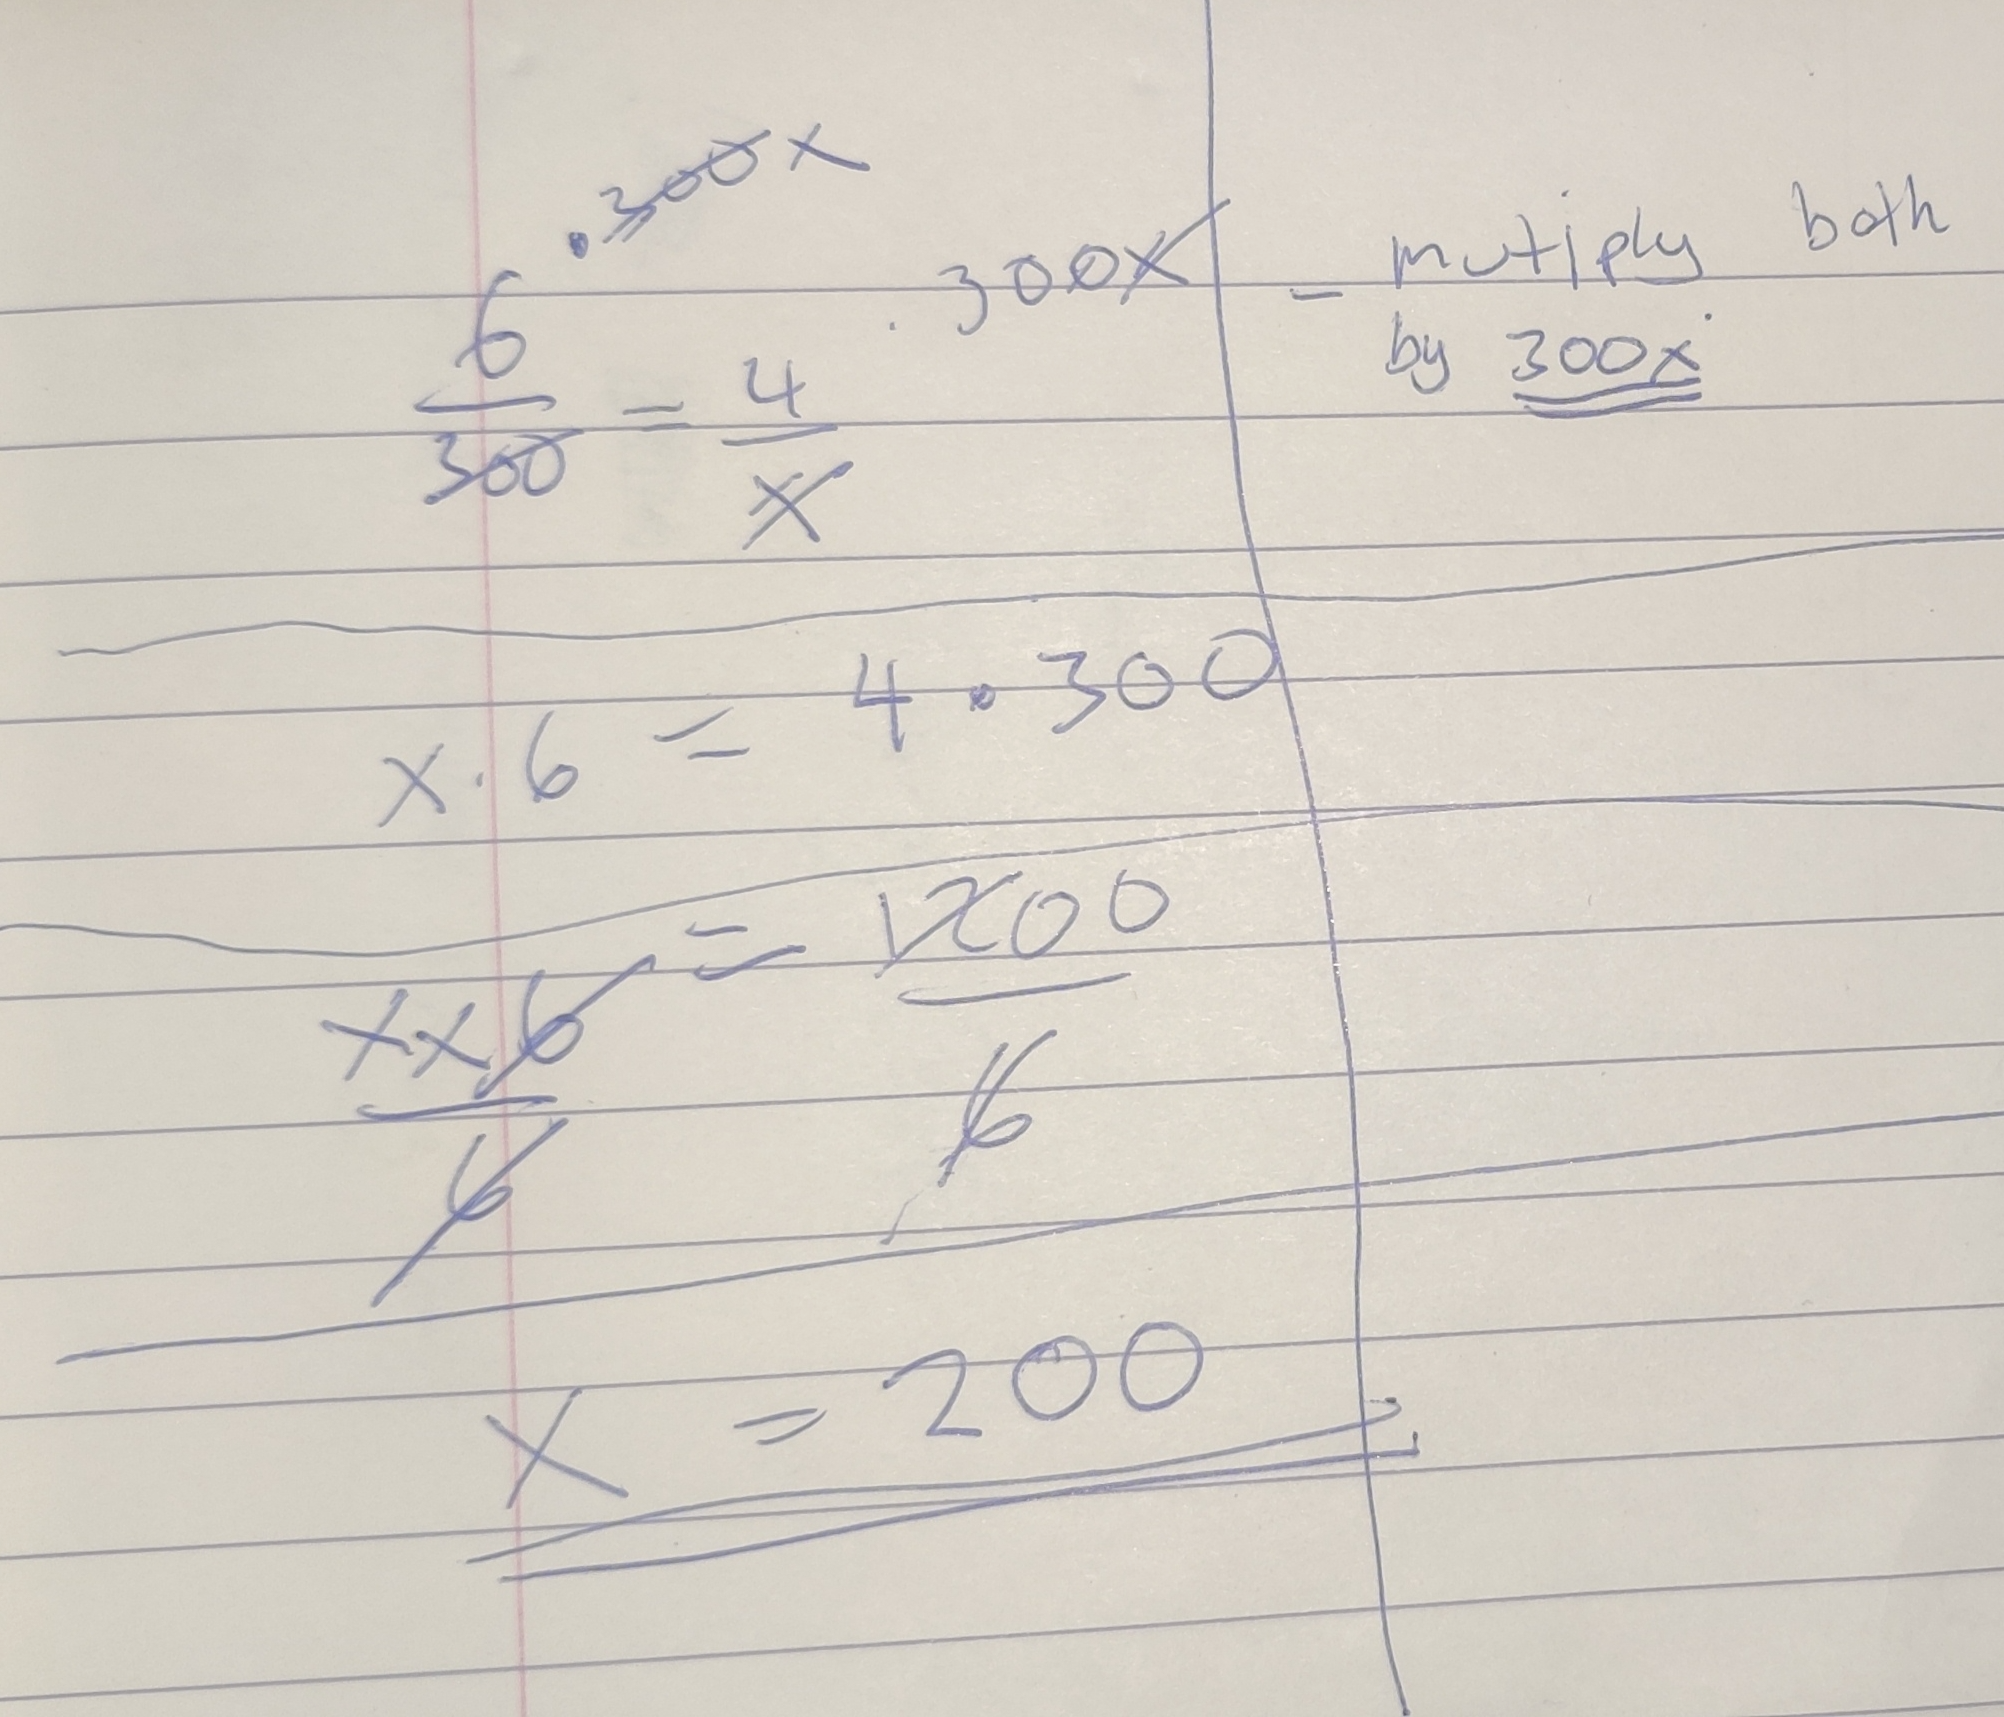 . 300x
6 . 300x
— = 4
300 x
- mutiply both
by 300x
x . 6 = 4 . 300
x x 6 = 1200
6 6
x = 200